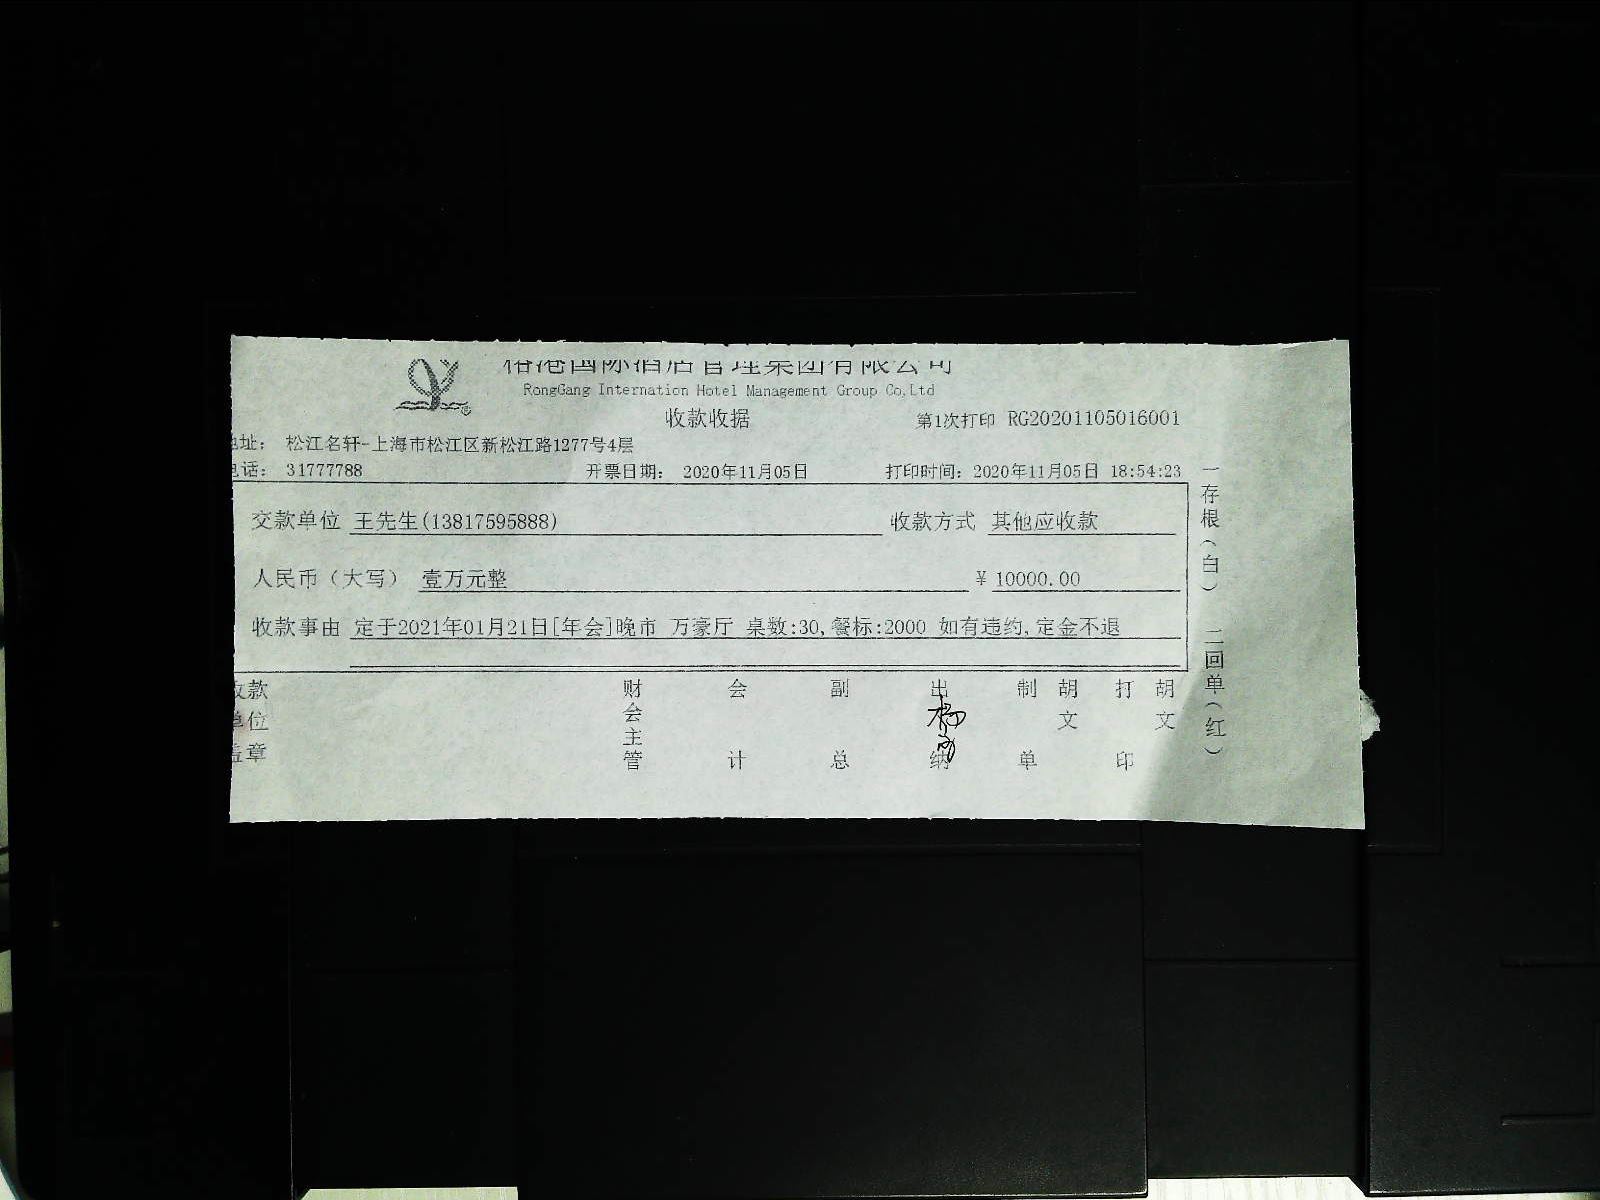 榕港国际酒店管理集团有限公司
RongGang Internation Hotel Management Group Co,Ltd
收款收据
第1次打印 RG20201105016001
地址: 松江名轩-上海市松江区新松江路1277号4层
电话: 31777788 开票日期: 2020年11月05日 打印时间: 2020年11月05日 18:54:23
交款单位 王先生(13817595888) 收款方式 其他应收款
人民币（大写） 壹万元整 ¥ 10000.00
收款事由 定于2021年01月21日[年会]晚市 万豪厅 桌数:30,餐标:2000 如有违约,定金不退
收款单位盖章 财会主管 会计 副总 出纳 制单 胡文 打印 胡文
一存根（白） 二回单（红）